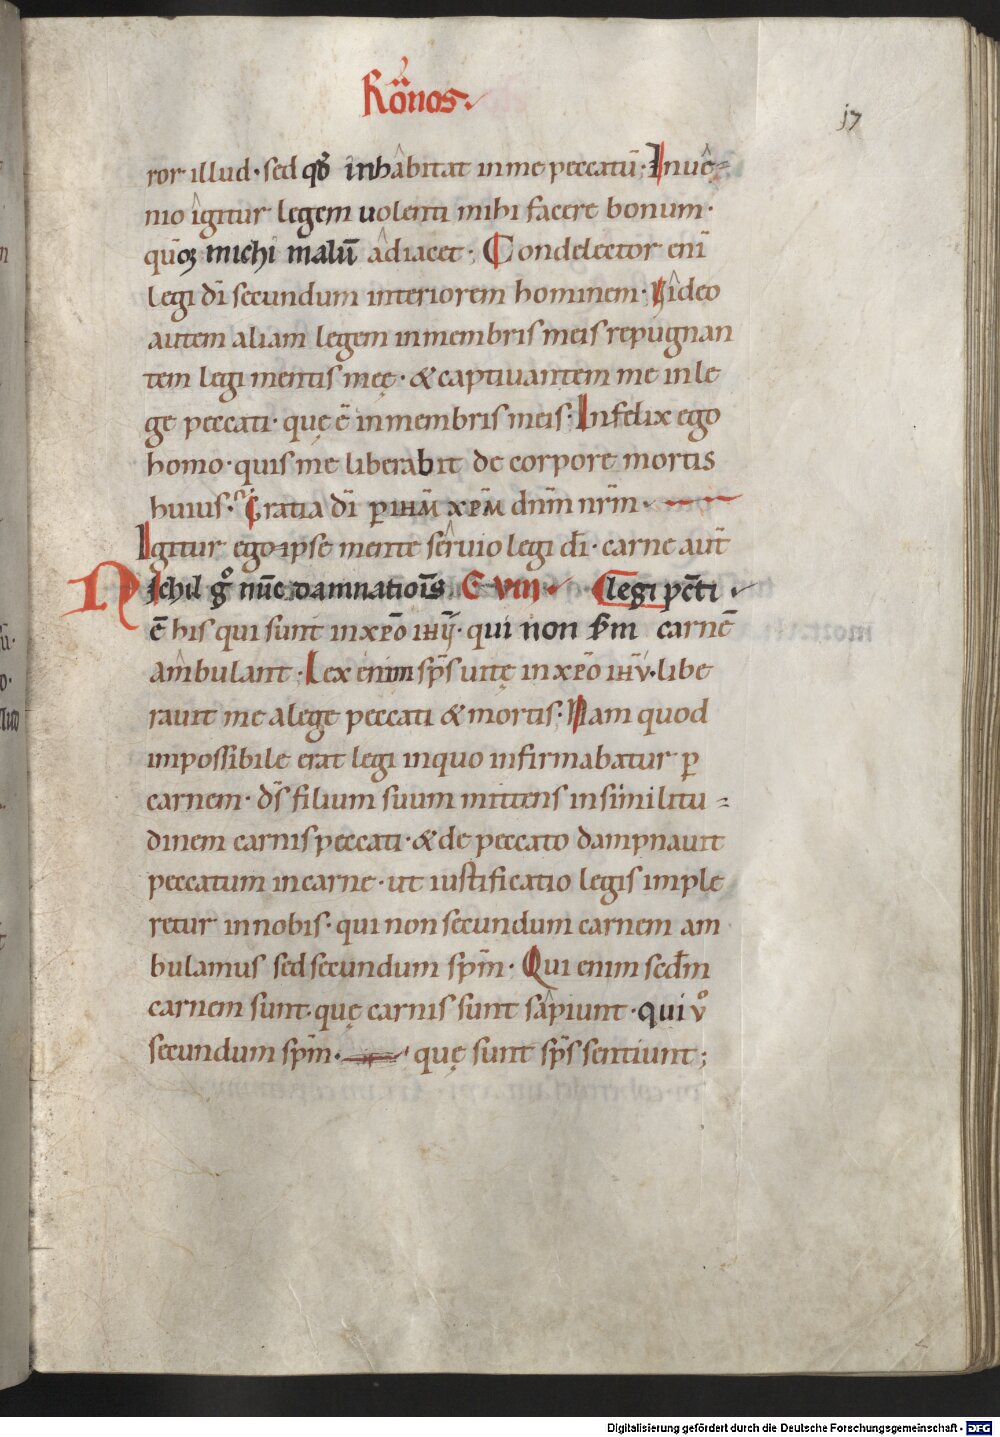 Ro̅nos.
17
ror illud· sed qd̅ inhâbitat in me peccatū· Inuê-
nio îgitur legem uolenti mihi facere bonum·
qūoꝫ michi malū adiacet· Condelector enī
legi dī secundum interiorem hominem· Uîdeo
autem aliam legem in membris meis repugnan
tem legi mentis meę· & captiuantem me in le
ge peccati· quę ē in membris meis· Infelix ego
homo· quis me liberabit de corpore mortis
huius· Gratia dī ꝑ ihm̅ xpm̅ dnm̅ nrm̅·
Igitur ego ipse mente sêruio legi dī· carne aut̅
Nichil gͦ nūc damnatiōis C VIII legi pct̅i
ē his qui sunt in xp̅o ihū· qui non sm̅ carnē
âmbulant· Lex enim sp̅s uitę in xp̅o ihū· libe
rauit me a lege peccati & mortis· Nam quod
impossibile erat legi in quo infirmabatur ꝑ
carnem· ds̅ filium suum mittens in similitu-
dinem carnis peccati· & de peccato dampnauit
peccatum in carne· ut iustificatio legis imple
retur in nobis· qui non secundum carnem am
bulamus sed secundum spm̅· Qui enim secdm̅
carnem sunt· quę carnis sunt sâpiunt· qui vͦ
secundum spm̅· quę sunt sp̅s sentiunt;
Digitalisierung gefördert durch die Deutsche Forschungsgemeinschaft - DFG